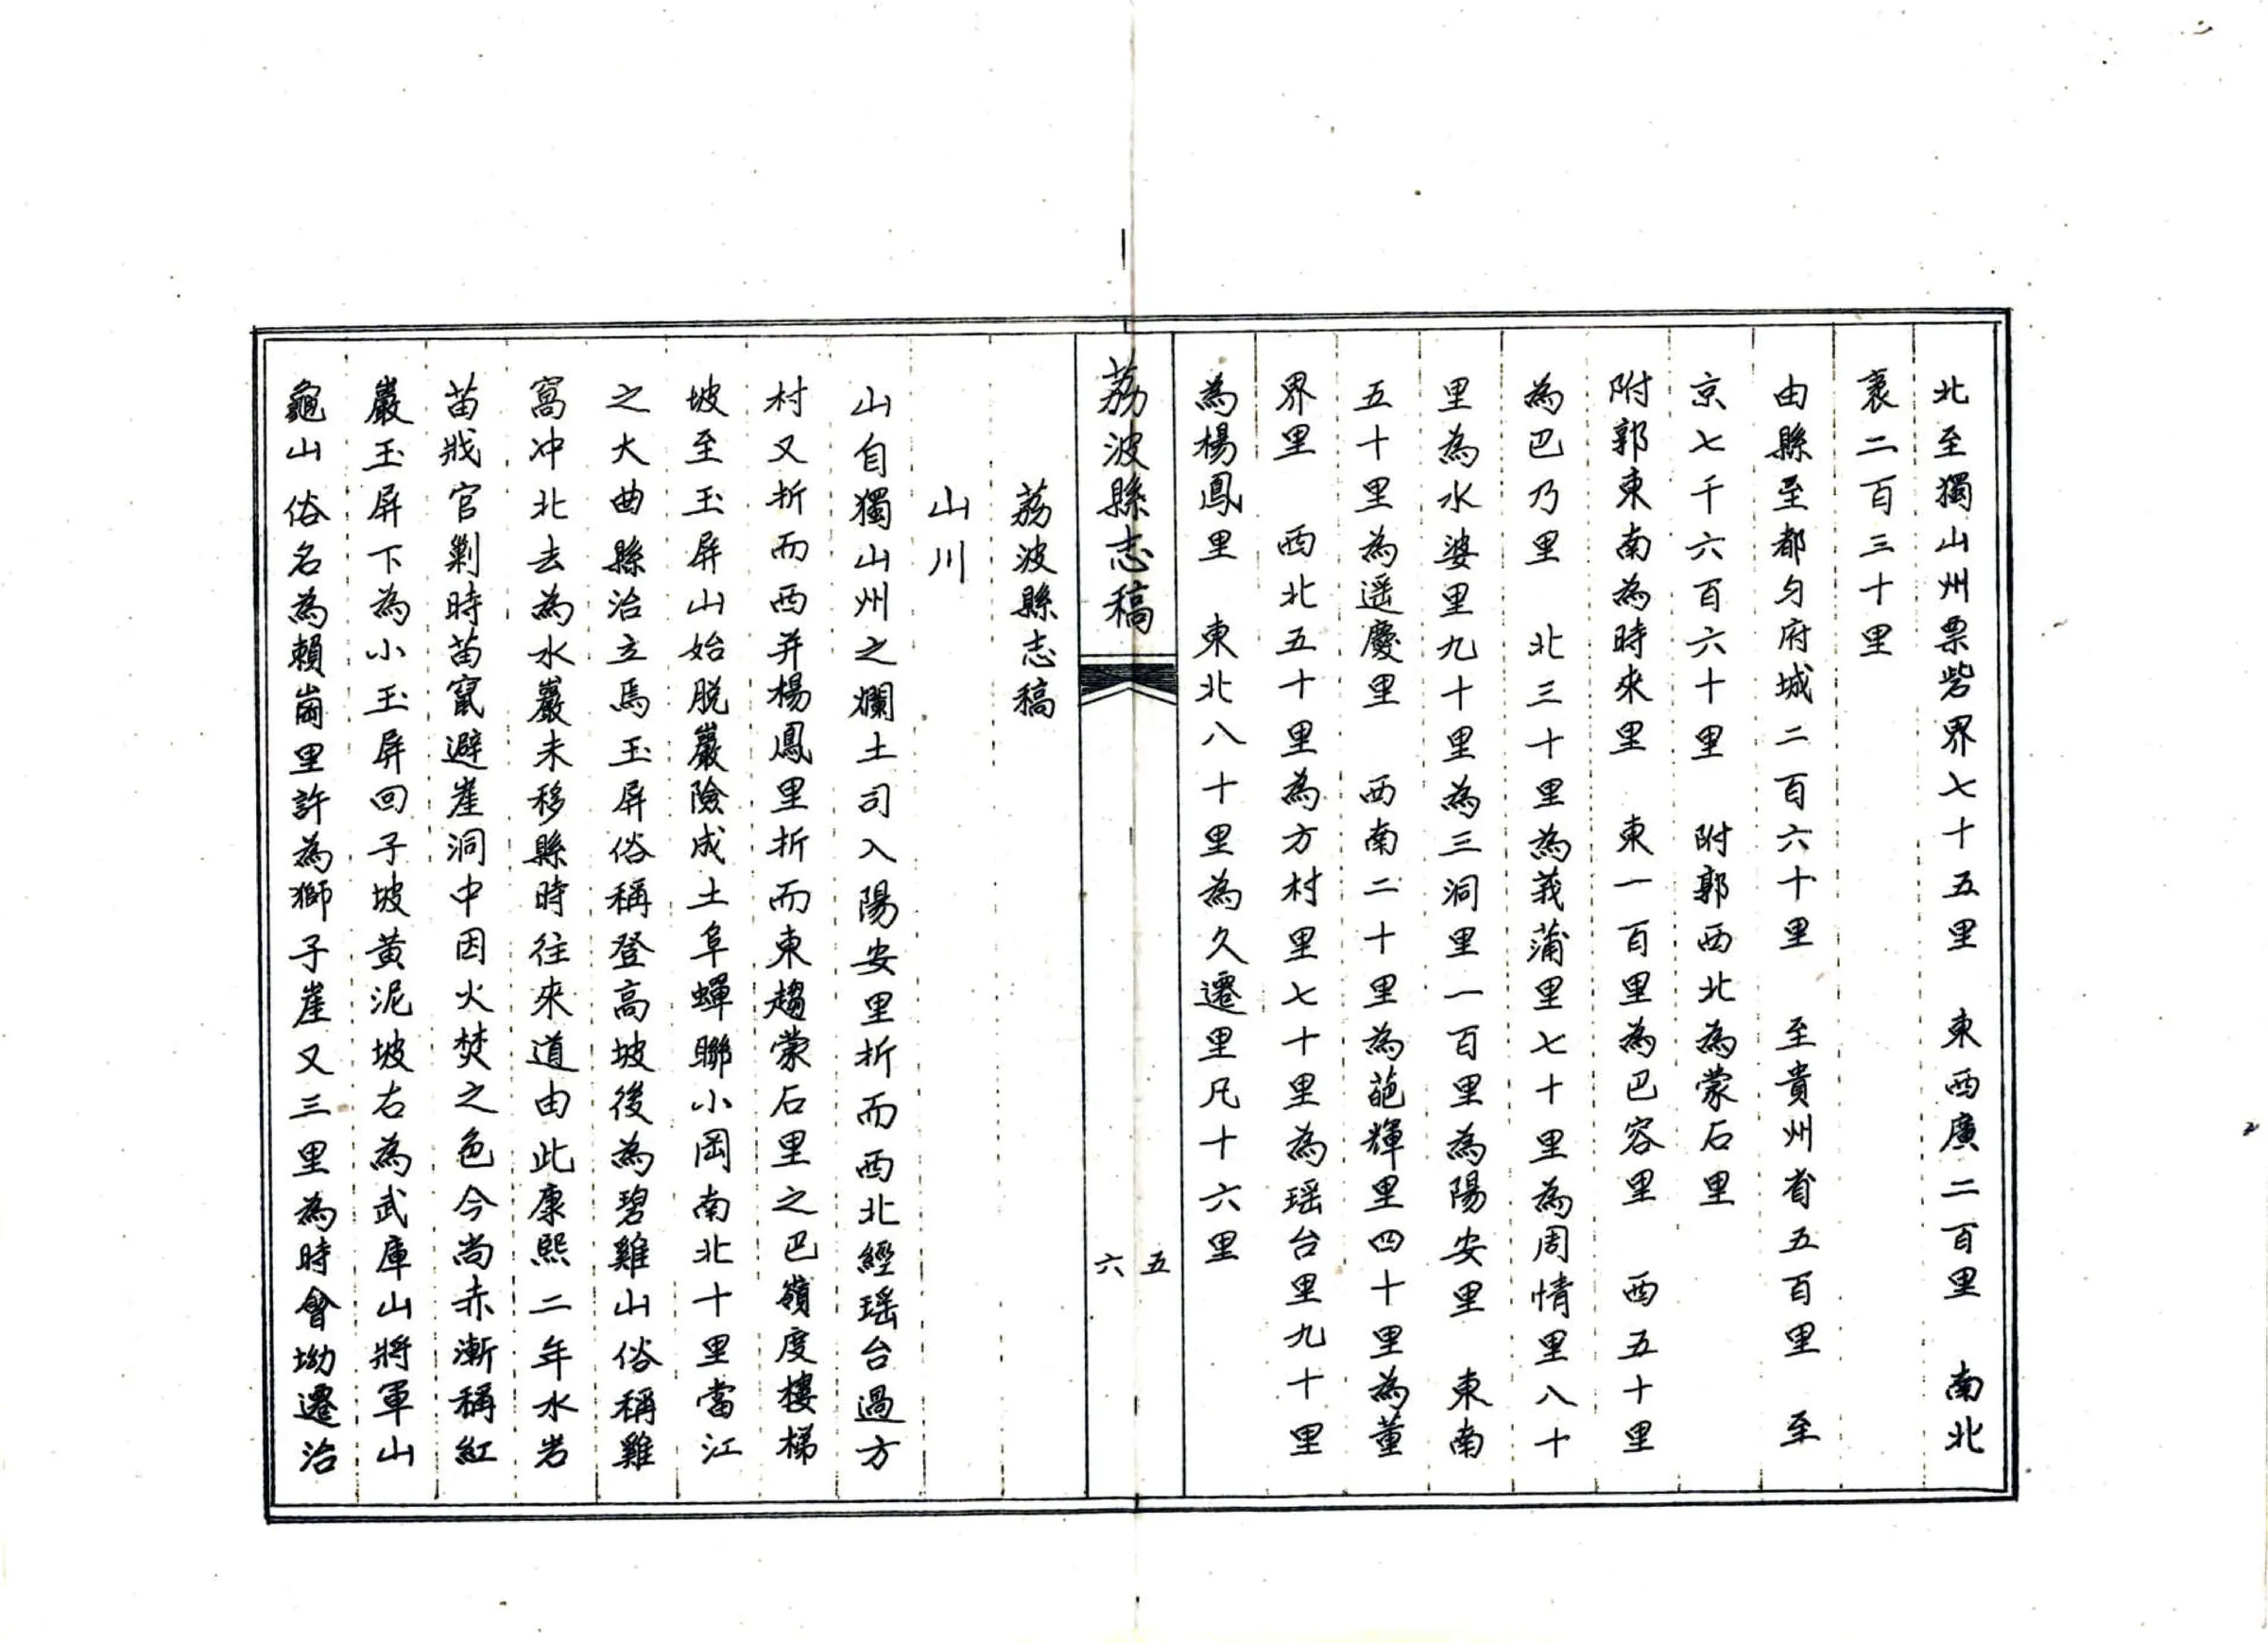 北至獨山州票砦界七十五里　東西廣二百里　南北
袤二百三十里
由縣至都勻府城二百六十里　至貴州省五百里　至
京七千六百六十里　附郭西北為蒙石里
附郭東南為時來里　東一百里為巴容里　西五十里
為巴乃里　北三十里為莪蒲里七十里為周情里八十
里為水婆里九十里為三洞里一百里為陽安里　東南
五十里為遥慶里　西南二十里為葩輝里四十里為董
界里　西北五十里為方村里七十里為瑶台里九十里
為楊鳳里　東北八十里為久遷里凡十六里
荔波縣志稿
五
六
荔波縣志稿
山川
山自獨山州之爛土司入陽安里折而西北經瑶台過方
村又折而西并楊鳳里折而東趨蒙石里之巴嶺度樓梯
坡至玉屏山始脱巖險成土阜蟬聯小岡南北十里當江
之大曲縣治立焉玉屏俗稱登高坡後為碧雞山俗稱雞
窩冲北去為水巖未移縣時往來道由此康熙二年水岩
苗戕官剿時苗竄避崖洞中因火焚之色今尚赤漸稱紅
巖玉屏下為小玉屏回子坡黄泥坡右為武庫山將軍山
龜山俗名為賴崗里許為獅子崖又三里為時會坳遷治